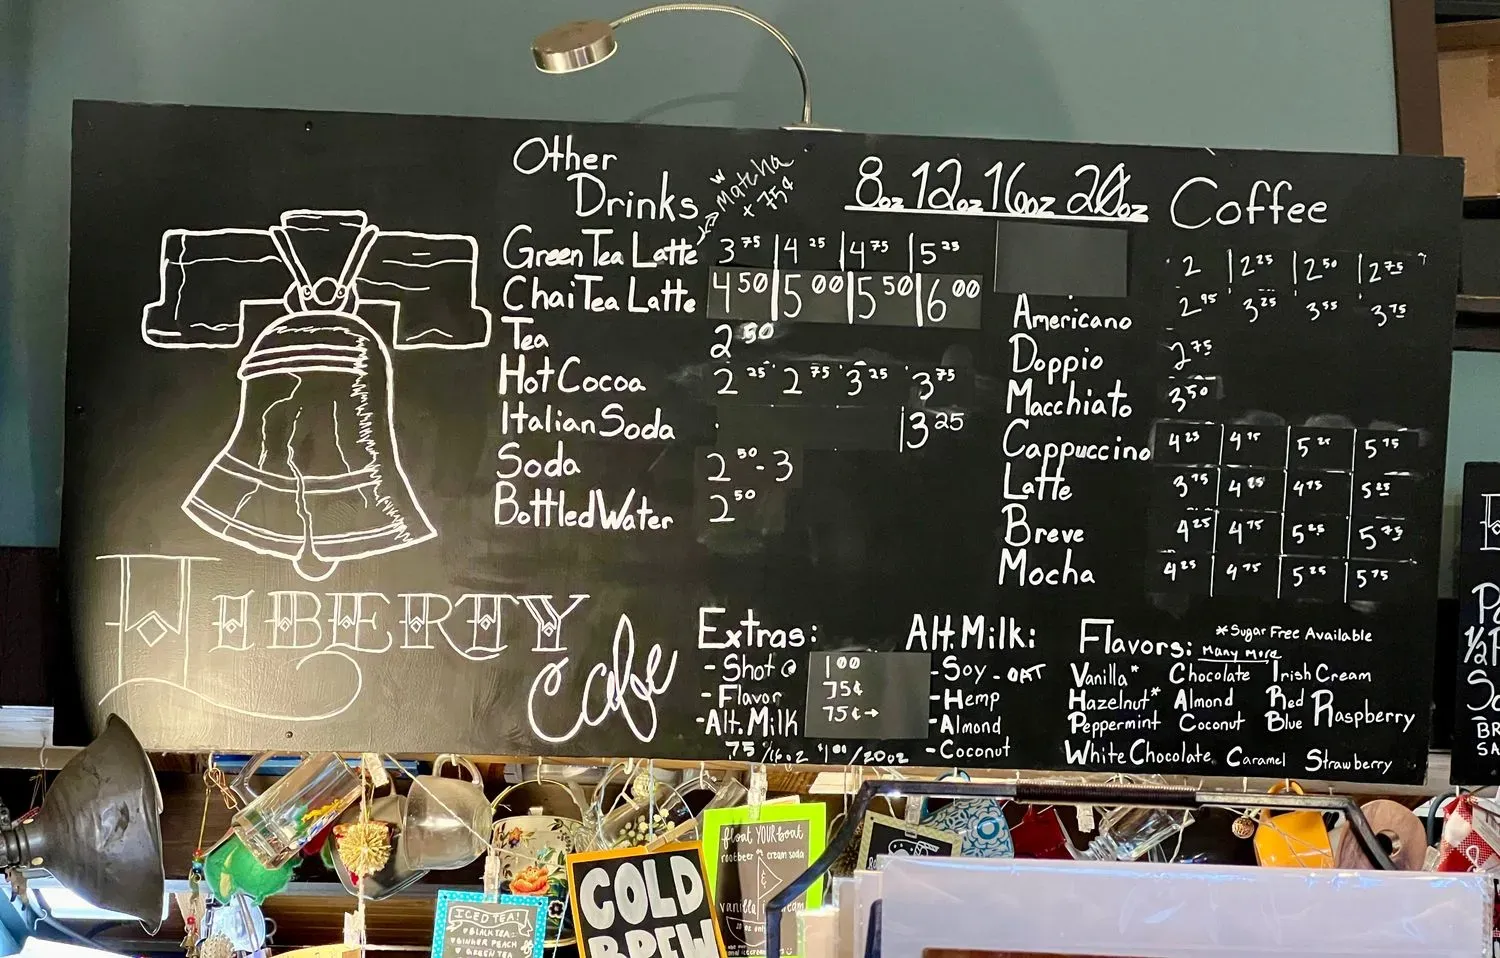 Other
Drinks
w
Matcha
+ 75¢
8oz 12oz 16oz 20oz
Green Tea Latte 3 75 | 4 25 | 4 75 | 5 25
Chai Tea Latte 4 50 | 5 00 | 5 50 | 6 00
Tea 2 50
Hot Cocoa 2 25 2 75 3 25 3 75
Italian Soda 3 25
Soda 2 50 - 3
Bottled Water 2 50
Coffee
2 | 2 25 | 2 50 | 2 75
Americano 2 95 3 25 3 55 3 75
Doppio 2 75
Macchiato 3 50
Cappuccino 4 25 4 75 5 25 5 75
Latte 3 75 4 25 4 75 5 25
Breve 4 25 4 75 5 25 5 75
Mocha 4 25 4 75 5 25 5 75
LIBERTY
cafe
Extras:
- Shot @ 1 00
- Flavor 75¢
- Alt. Milk 75¢ →
75/16oz $1 00/20oz
Alt. Milk:
- Soy - OAT
- Hemp
- Almond
- Coconut
Flavors: *Sugar Free Available
Many More
Vanilla* Chocolate Irish Cream
Hazelnut* Almond Red Raspberry
Peppermint Coconut Blue
White Chocolate Caramel Strawberry
float YOUR boat
rootbeer or cream soda
COLD
BREW
ICED TEA!
BLACK TEA
GINGER PEACH
GREEN TEA
1/2
BR
SA